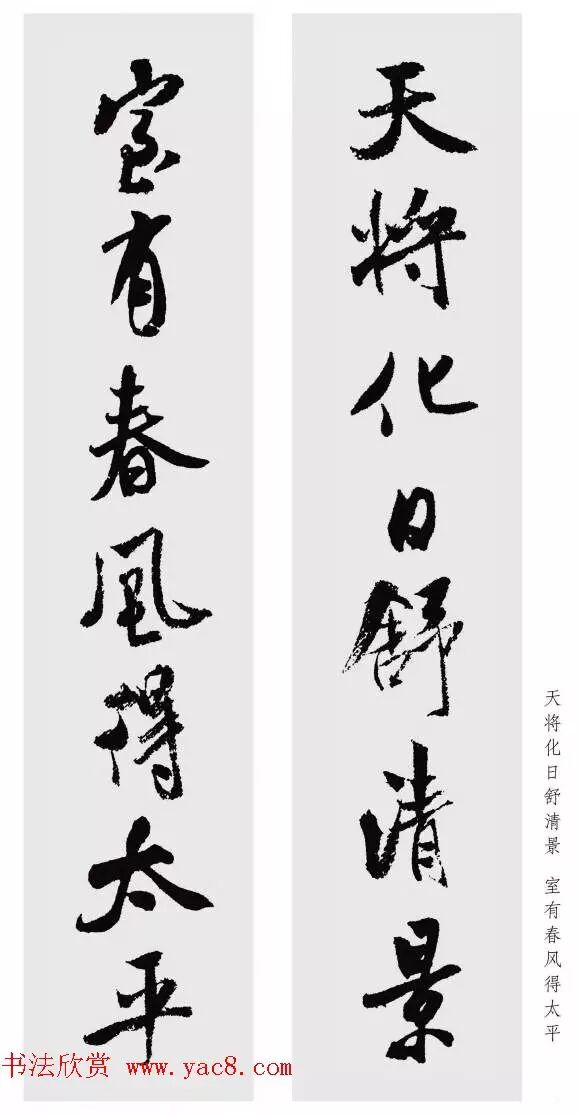 天将化日舒清景
室有春风得太平
天将化日舒清景 室有春风得太平
书法欣赏 www.yac8.com